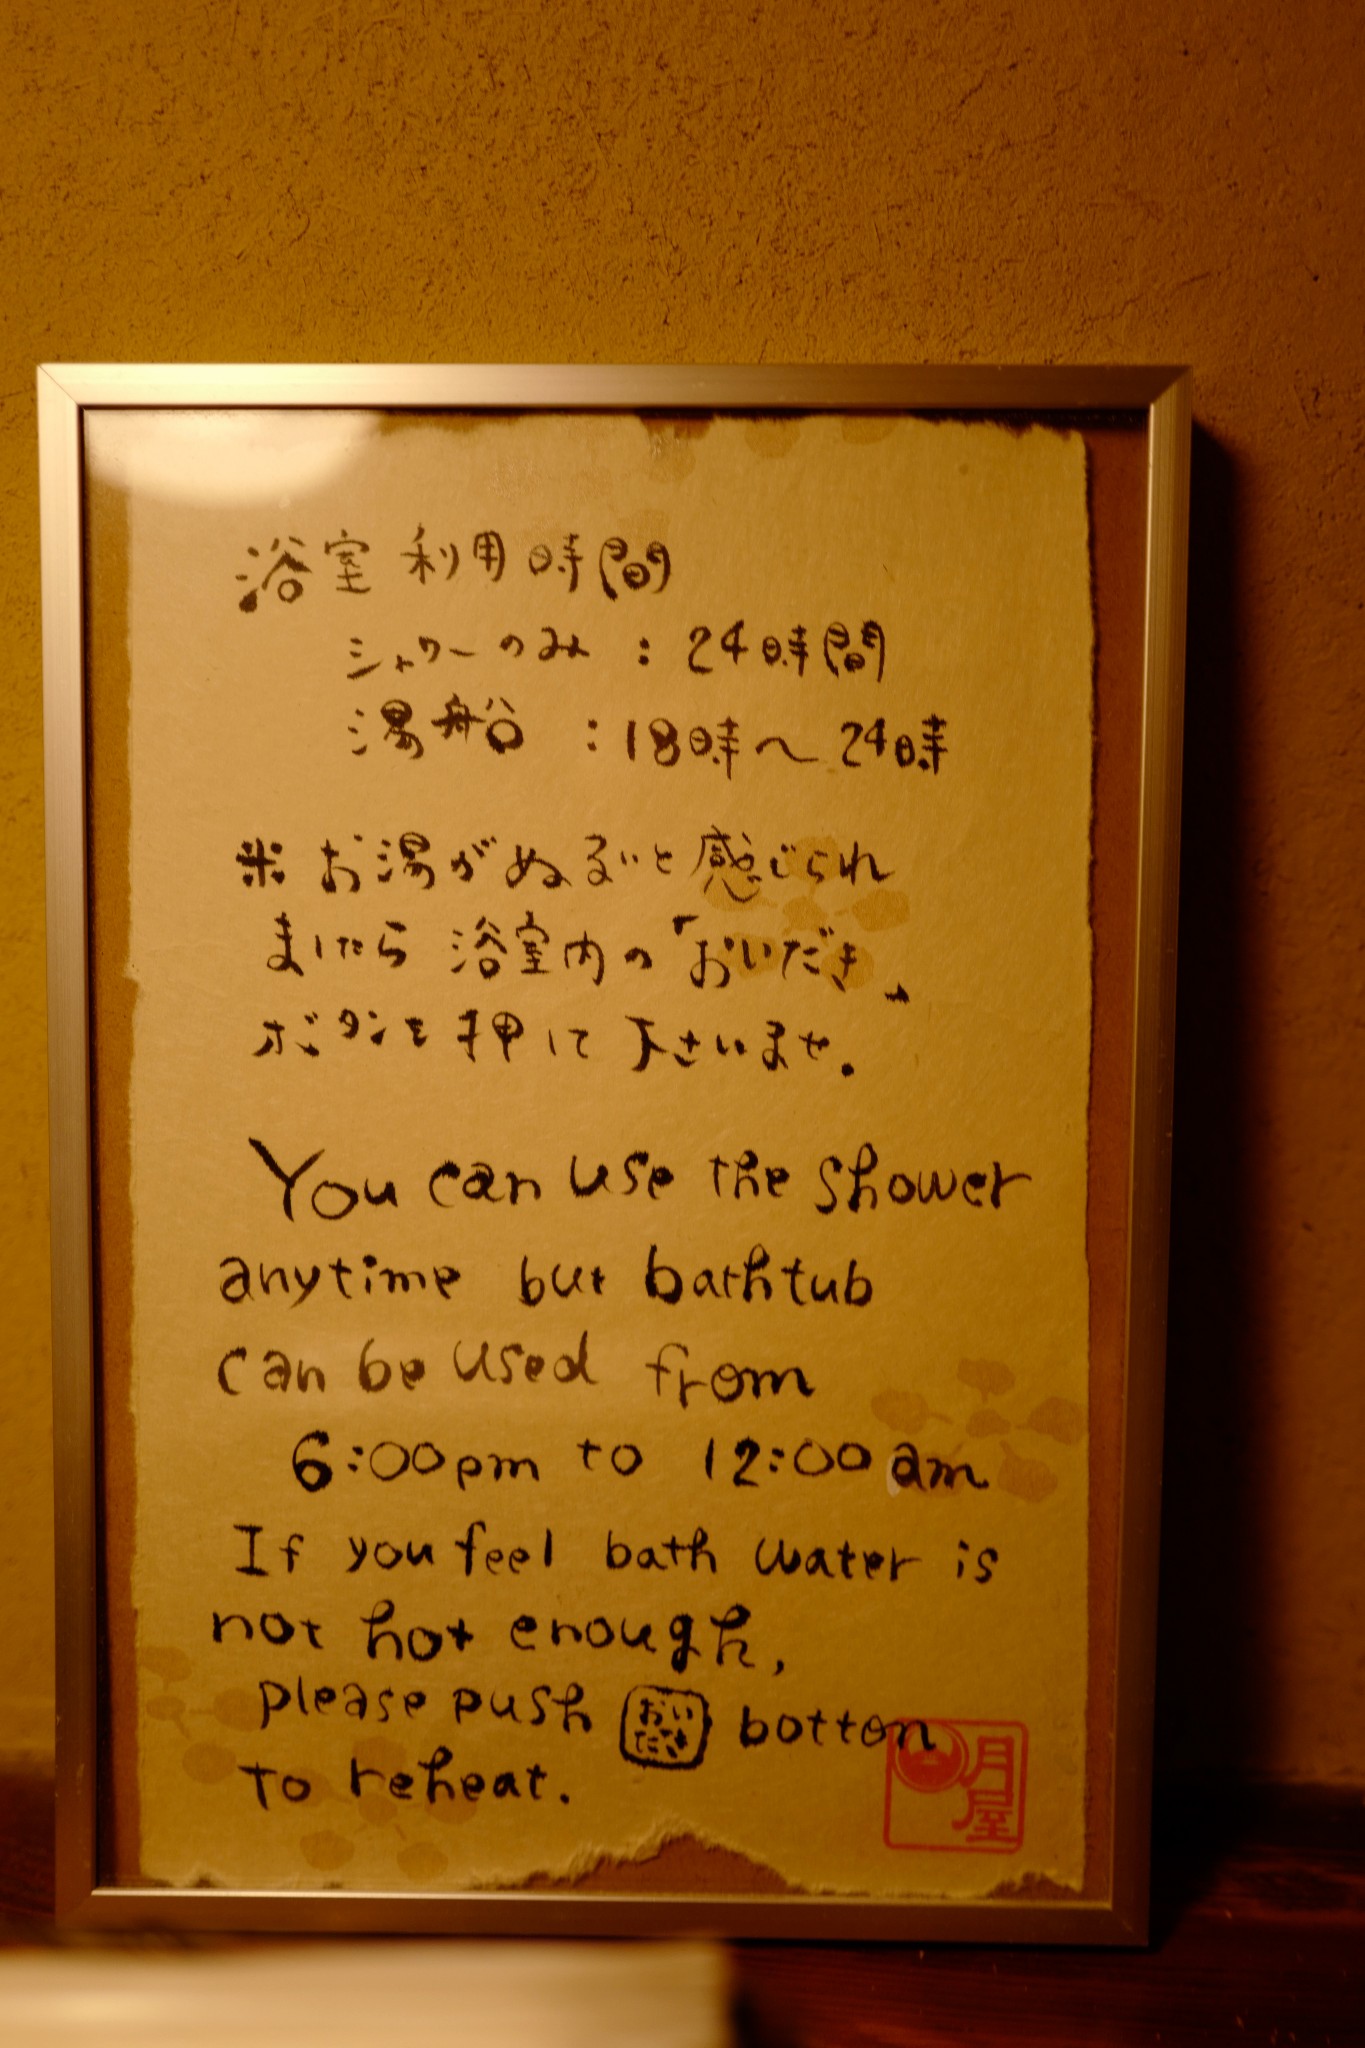 浴室利用時間
シャワーのみ：24時間
湯船：18時〜24時
※お湯がぬるいと感じられ
ましたら浴室内の「おいだき」
ボタンを押して下さいませ.
You can use the shower
anytime but bathtub
can be used from
6:00pm to 12:00am
If you feel bath water is
not hot enough,
please push おいだき botton
to reheat.
月屋